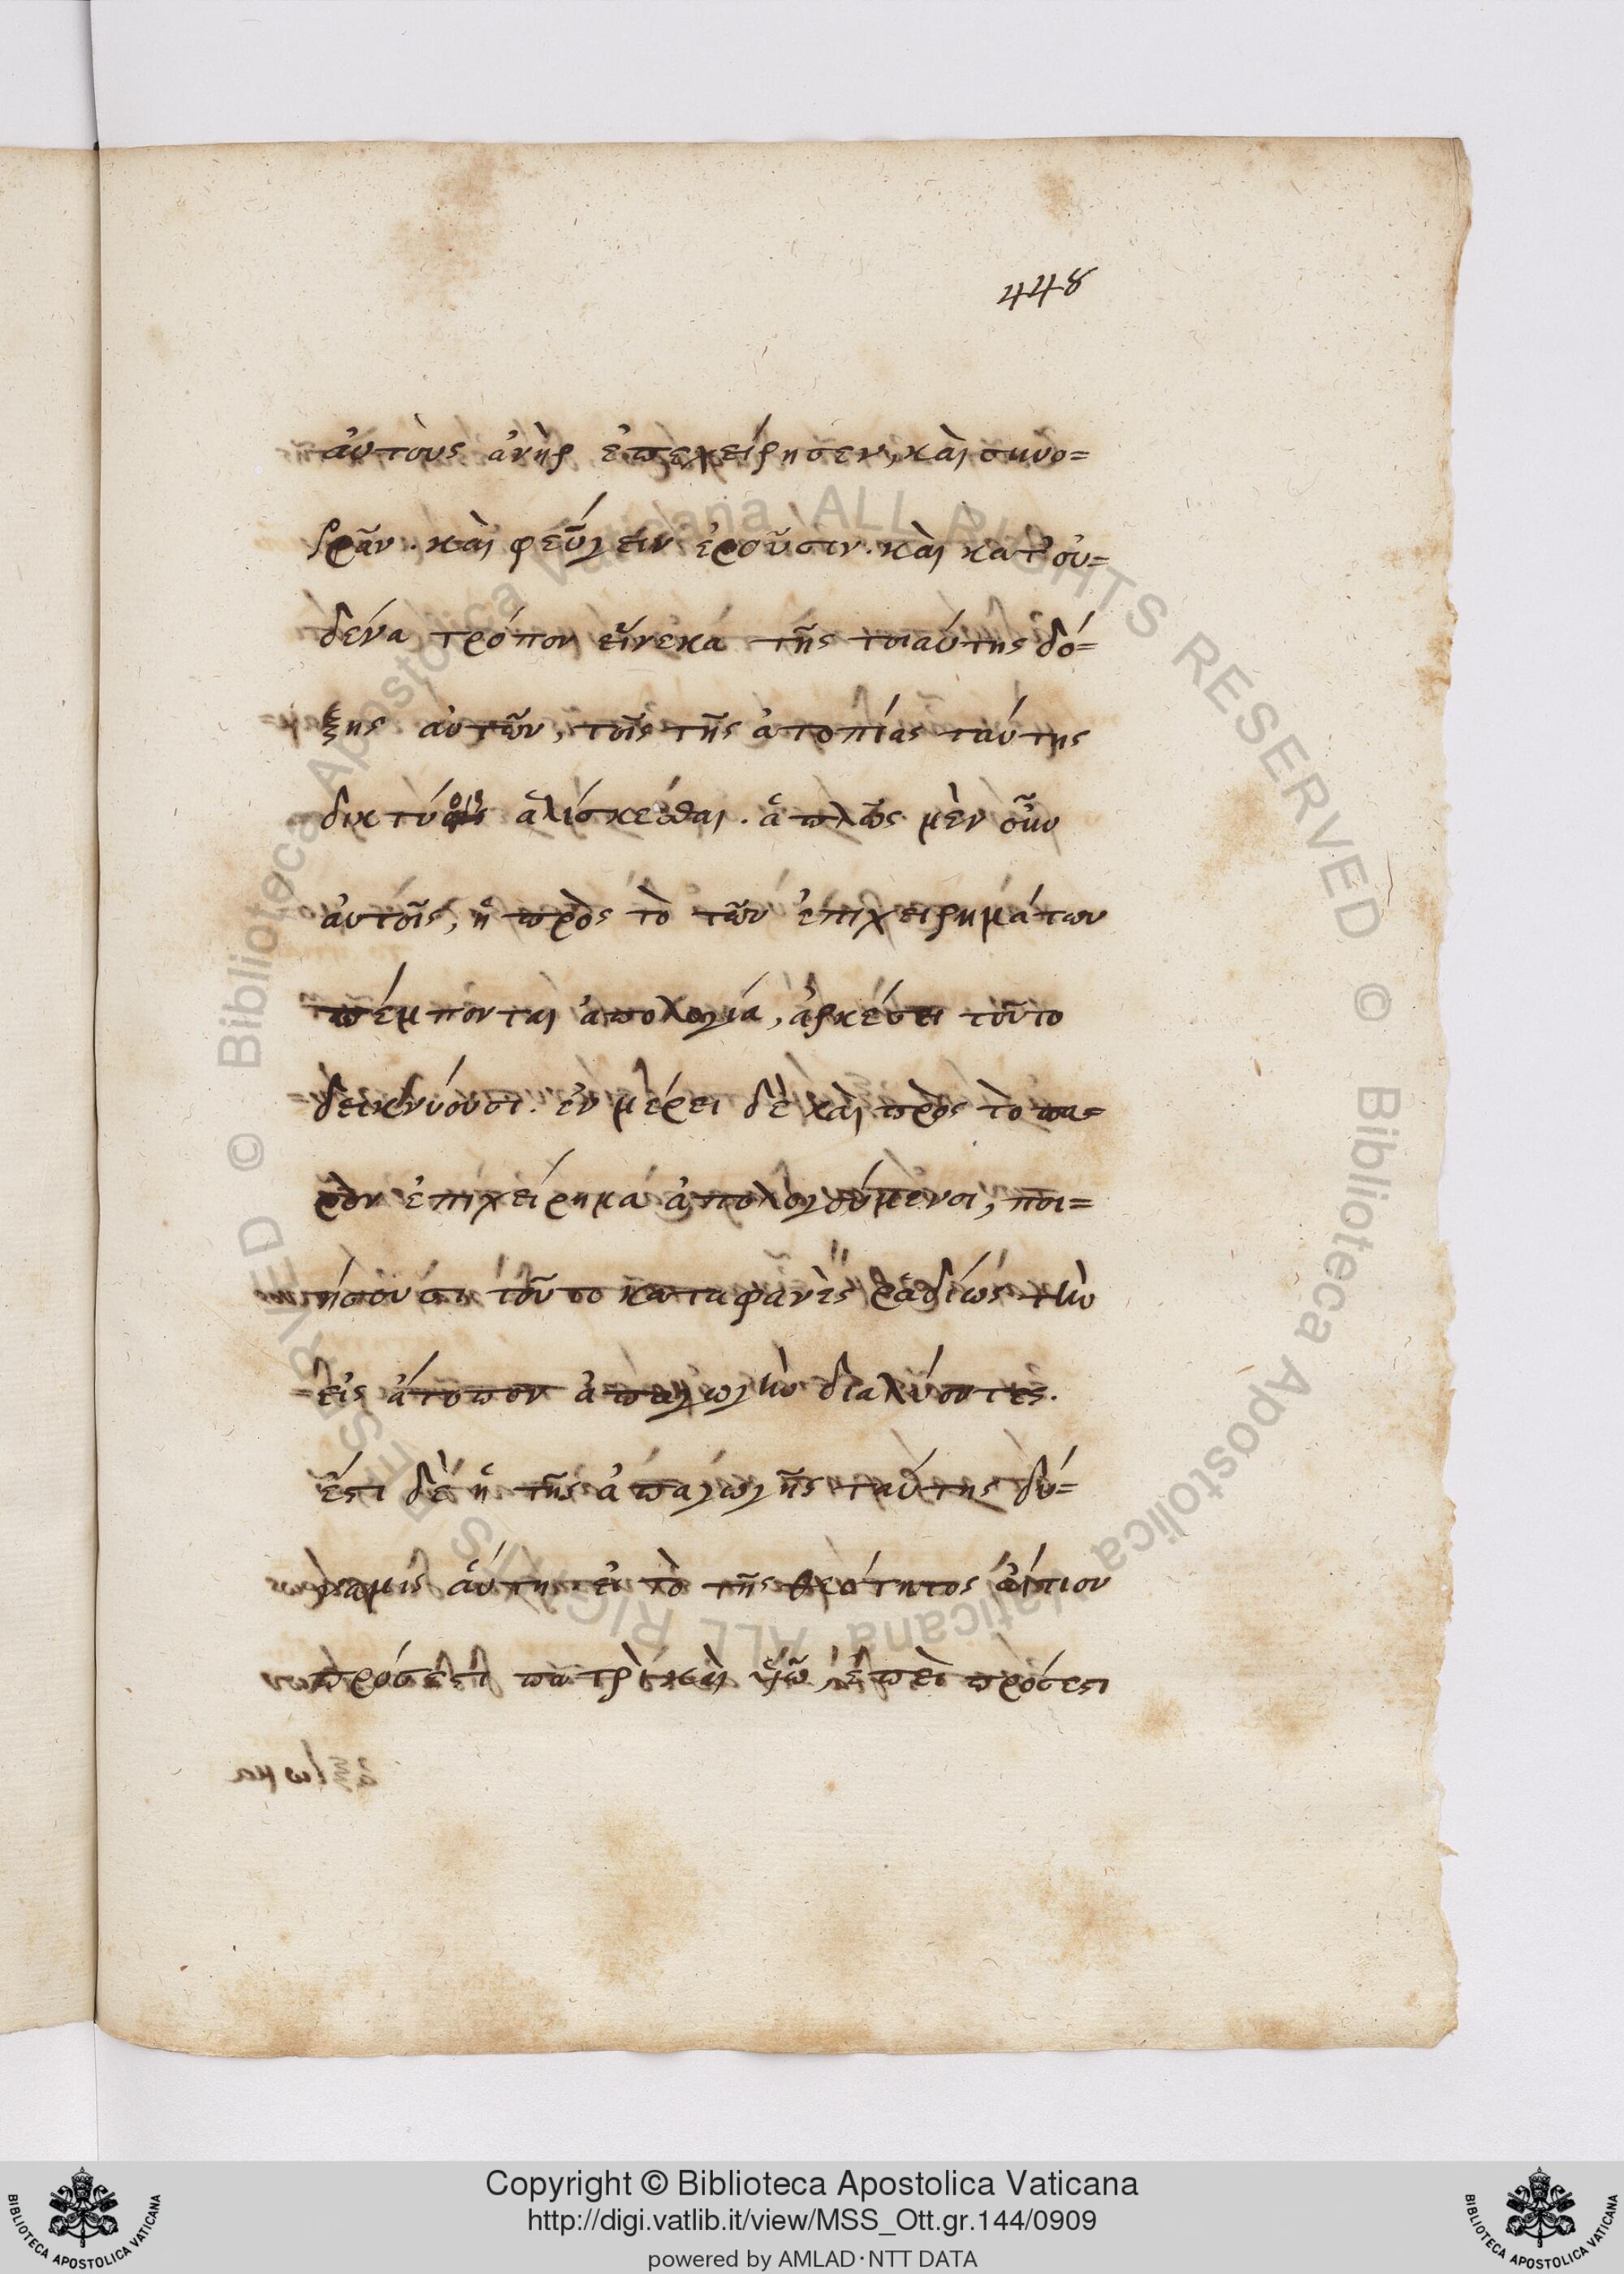 448
αὐτοὺς ἀνὴρ ἐπεχείρησεν, καὶ συνο=
ρᾶν. καὶ φεύγειν ἐροῦσιν. καὶ κατ' οὐ=
δένα τρόπον εἵνεκα τῆς τοιαύτης δό=
ξης αὐτῶν, τοῖς τῆς ἀτοπίας ταύτης
δικτύοις ἁλίσκεσθαι. ἁπλῶς μὲν οὖν
αὐτοῖς, ἡ πρὸς τὸ τῶν ἐπιχειρημάτων
πέμπονται ἀπολογία, ἀρκέσει τοῦτο
δεικνύουσι. ἐν μέρει δὲ καὶ πρὸς τὸ πα=
ρὸν ἐπιχείρημα ἀπολογούμενοι, ποι=
ήσουσι τοῦτο καταφανὲς ῥαδίως τὴν
εἰς ἄτοπον ἀπαγωγὴν διαλύοντες.
ἔστι δὲ ἡ τῆς ἀπαγωγῆς ταύτης δύ=
ναμις αὕτη. εἰ τὸ τῆς θεότητος αἴτιον
πρόσεστι πατρὶ καὶ υἱῷ, ἐπεὶ πρόσεστι
ἀξίωμα
© Biblioteca Apostolica Vaticana ALL RIGHTS RESERVED © Biblioteca Apostolica Vaticana ALL RIGHTS RESERVED
BIBLIOTECA APOSTOLICA VATICANA
Copyright © Biblioteca Apostolica Vaticana
http://digi.vatlib.it/view/MSS_Ott.gr.144/0909
powered by AMLAD·NTT DATA
BIBLIOTECA APOSTOLICA VATICANA